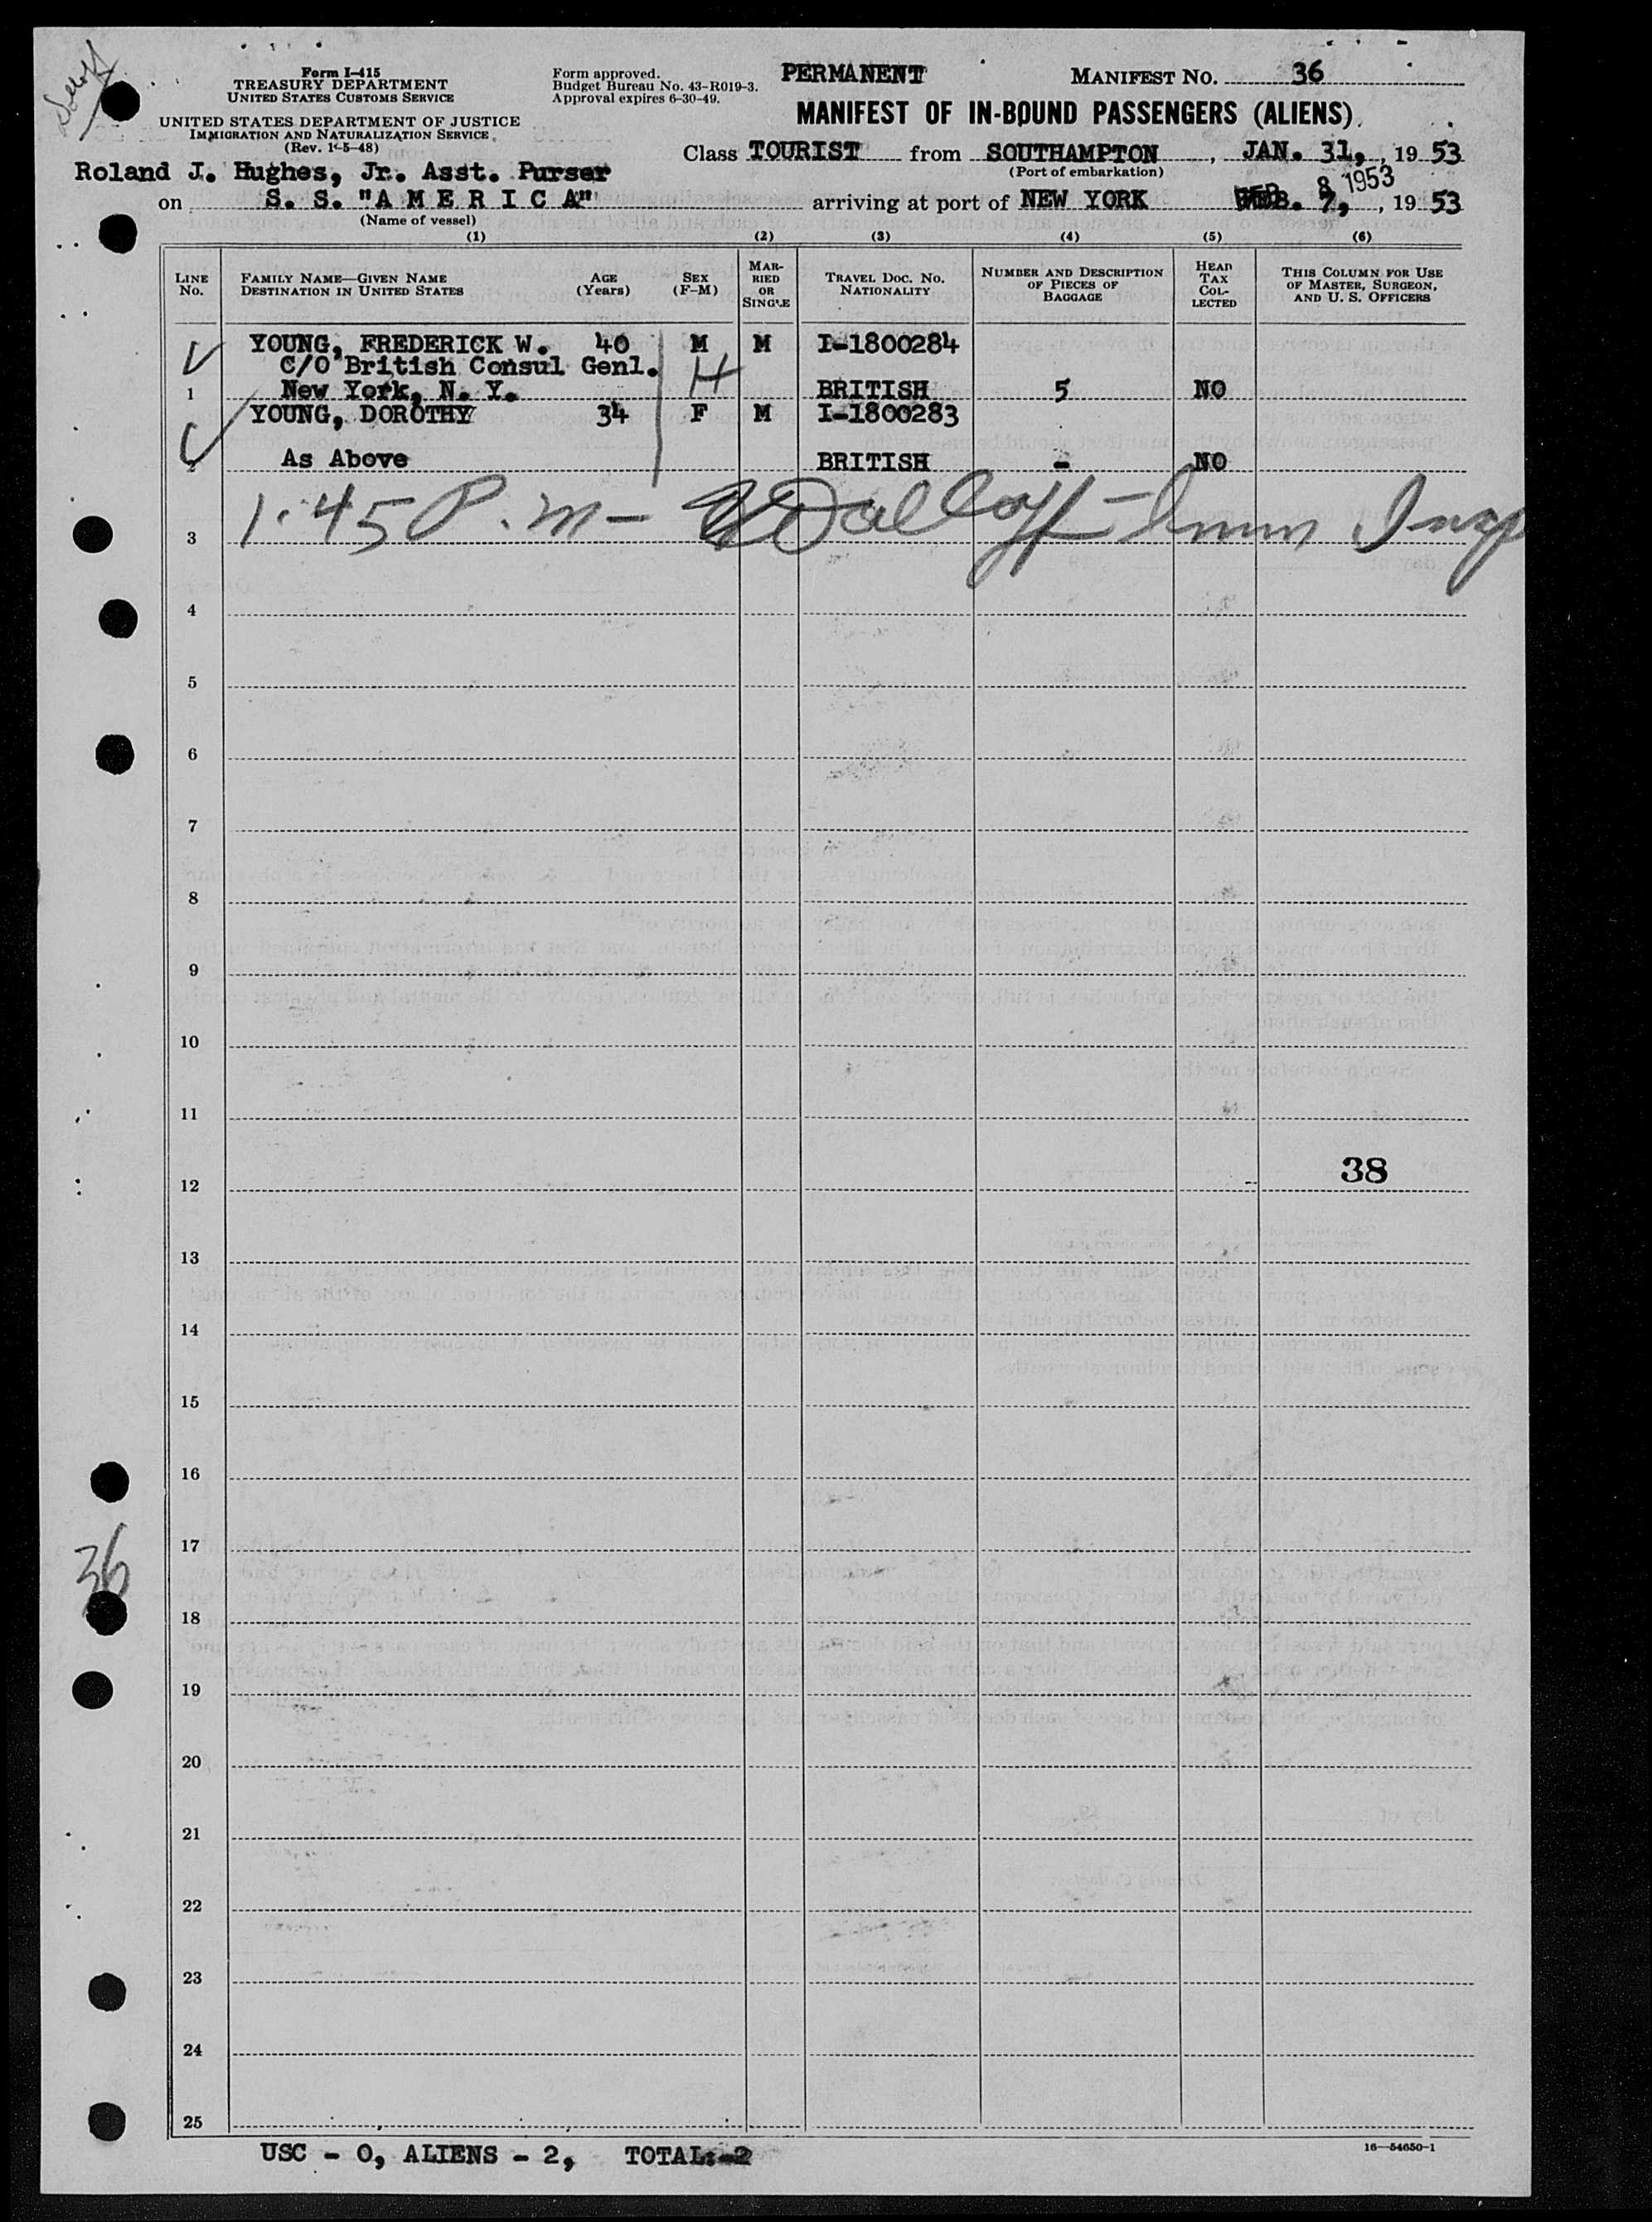 Form I-415
TREASURY DEPARTMENT
UNITED STATES CUSTOMS SERVICE
UNITED STATES DEPARTMENT OF JUSTICE
IMMIGRATION AND NATURALIZATION SERVICE
(Rev. 1-5-48)
Form approved.
Budget Bureau No. 43-R019-3.
Approval expires 6-30-49.
PERMANENT
MANIFEST NO. 36
MANIFEST OF IN-BOUND PASSENGERS (ALIENS)
Class TOURIST from SOUTHAMPTON, JAN. 31, , 19 53
(Port of embarkation)
Roland J. Hughes, Jr. Asst. Purser
on S. S. "A M E R I C A" arriving at port of NEW YORK FEB. 7, , 19 53
8 1953
(Name of vessel)
(1) (2) (3) (4) (5) (6)
LINE NO.
FAMILY NAME—GIVEN NAME
DESTINATION IN UNITED STATES
AGE (Years)
SEX (F-M)
MARRIED OR SINGLE
TRAVEL DOC. NO.
NATIONALITY
NUMBER AND DESCRIPTION OF PIECES OF BAGGAGE
HEAD TAX COLLECTED
THIS COLUMN FOR USE OF MASTER, SURGEON, AND U. S. OFFICERS
YOUNG, FREDERICK W. 40 M M I-1800284
C/O British Consul Genl.
1 New York, N. Y. BRITISH 5 NO
YOUNG, DOROTHY 34 F M I-1800283
As Above BRITISH - NO
1:45 P.m - Imm Insp
3
4
5
6
7
8
9
10
11
12 38
13
14
15
16
17
36
18
19
20
21
22
23
24
25
USC - 0, ALIENS - 2, TOTAL:-2
16—54650-1